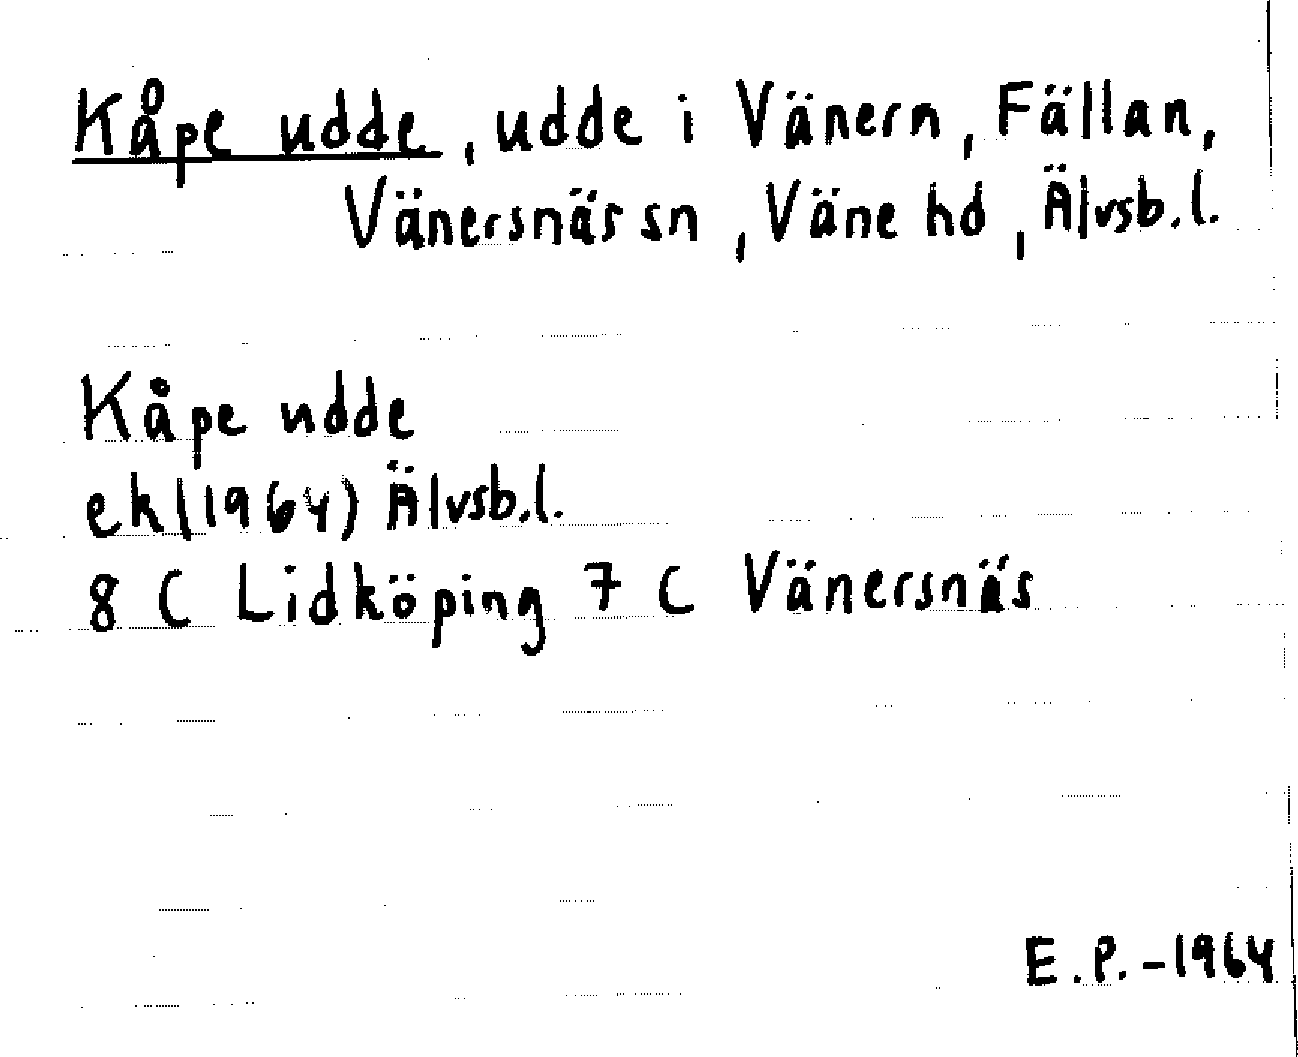 Kåpe udde, udde i Vänern, Fällan,
Vänersnäs sn, Väne hd, Älvsb.l.
Kåpe udde
ek(1964) Älvsb.l.
8 C Lidköping 7 C Vänersnäs
E.P.-1964